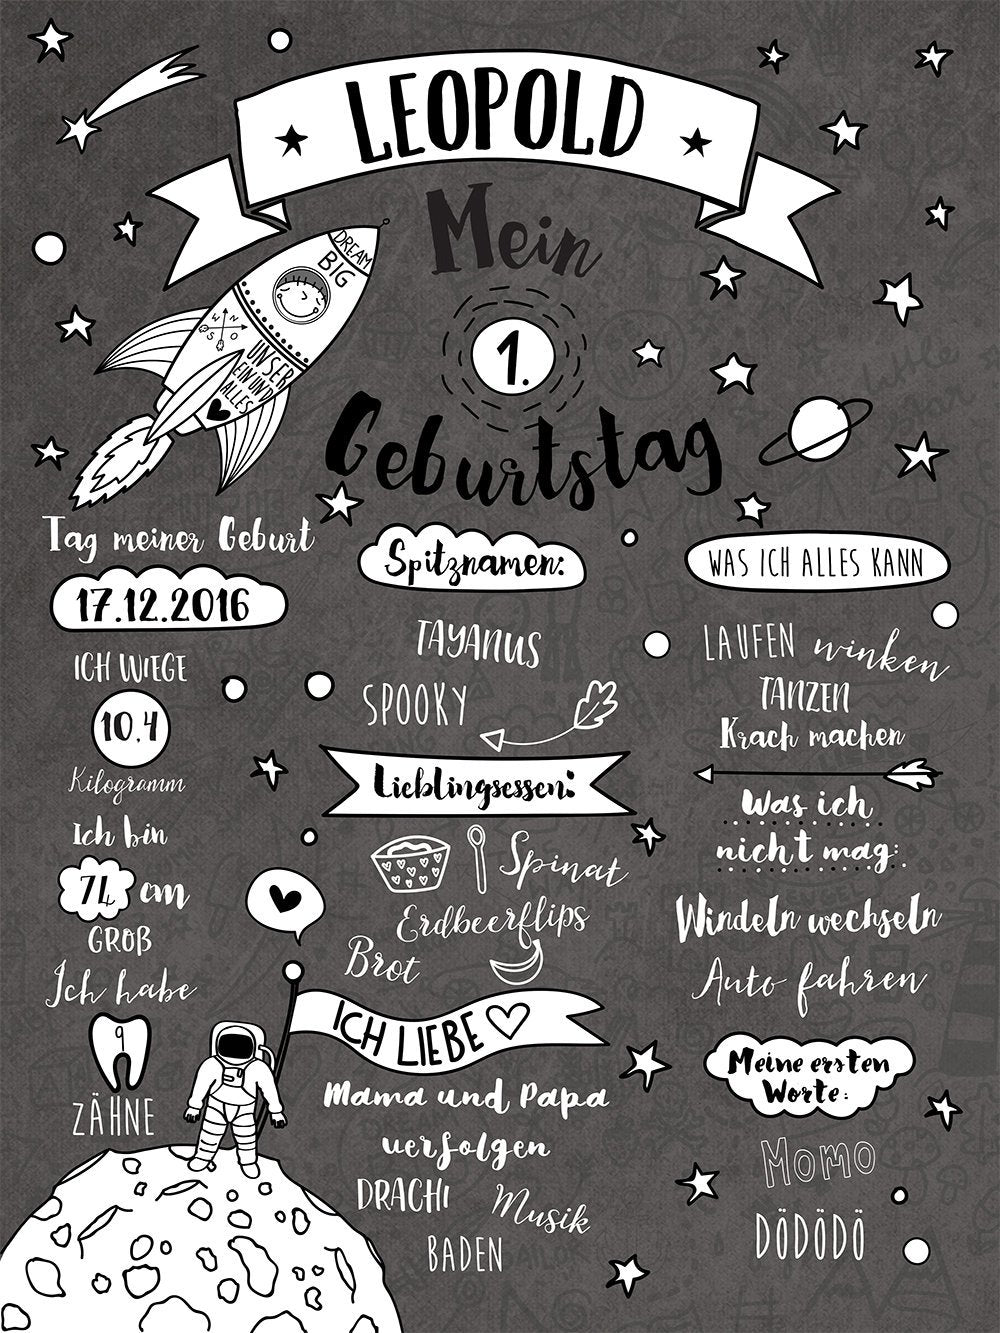 LEOPOLD
Mein
1.
Geburtstag
DREAM
BIG
N
W
O
S
UNSER
EIN UND
ALLES
Tag meiner Geburt
17.12.2016
ICH WIEGE
10,4
Kilogramm
Ich bin
74 cm
GROß
Ich habe
9
ZÄHNE
Spitznamen:
TAYANUS
SPOOKY
Lieblingsessen:
Spinat
Erdbeerflips
Brot
ICH LIEBE
Mama und Papa
verfolgen
DRACHI Musik
BADEN
WAS ICH ALLES KANN
LAUFEN winken
TANZEN
Krach machen
Was ich
nicht mag:
Windeln wechseln
Auto fahren
Meine ersten
Worte:
MOMO
DÖDÖDÖ